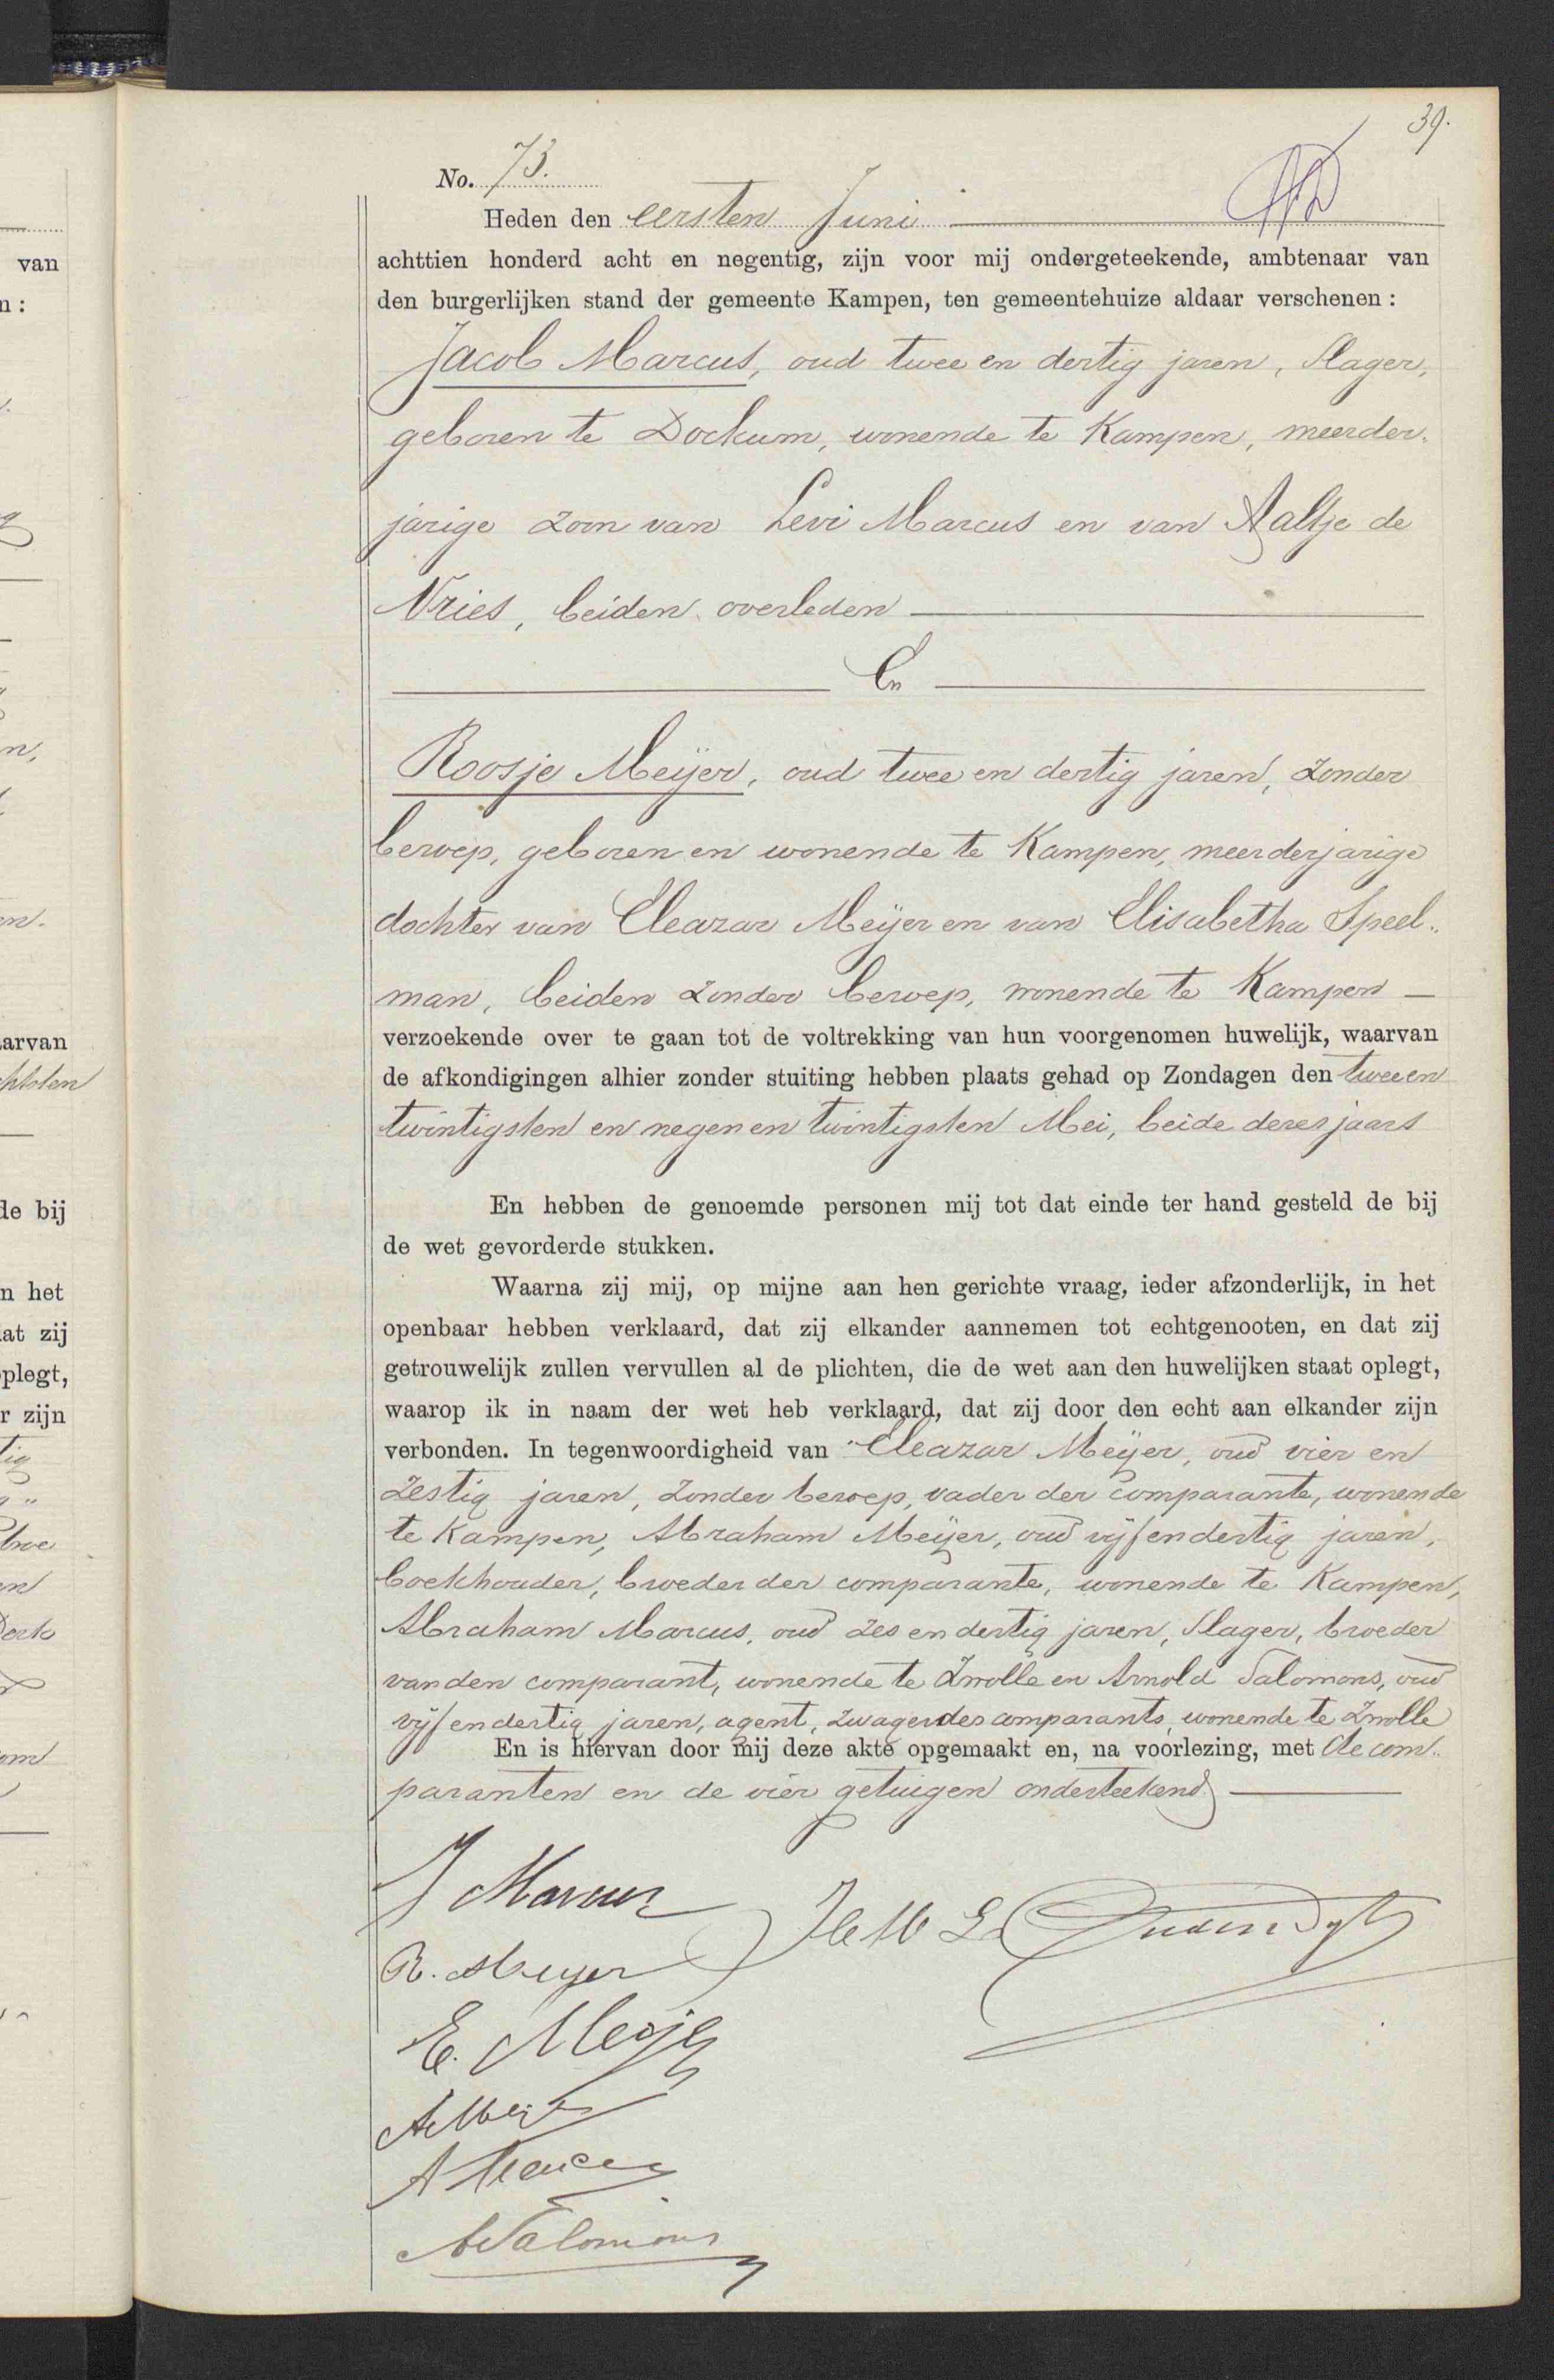 39.
No. 73.
Heden den eersten Juni
achttien honderd acht en negentig, zijn voor mij ondergeteekende, ambtenaar van
den burgerlijken stand der gemeente Kampen, ten gemeentehuize aldaar verschenen:
Jacob Marcus, oud twee en dertig jaren, Slager,
geboren te Dockum, wonende te Kampen, meerder-
jarige zoon van Levi Marcus en van Aaltje de
Vries, beiden overleden
En
Roosje Meijer, oud twee en dertig jaren, zonder
beroep, geboren en wonende te Kampen, meerderjarige
dochter van Eleazar Meijer en van Elisabetha Speel-
man, beiden zonder beroep, wonende te Kampen
verzoekende over te gaan tot de voltrekking van hun voorgenomen huwelijk, waarvan
de afkondigingen alhier zonder stuiting hebben plaats gehad op Zondagen den tweeen
twintigsten en negen en twintigsten Mei, beide dezes jaars
En hebben de genoemde personen mij tot dat einde ter hand gesteld de bij
de wet gevorderde stukken.
Waarna zij mij, op mijne aan hen gerichte vraag, ieder afzonderlijk, in het
openbaar hebben verklaard, dat zij elkander aannemen tot echtgenooten, en dat zij
getrouwelijk zullen vervullen al de plichten, die de wet aan den huwelijken staat oplegt,
waarop ik in naam der wet heb verklaard, dat zij door den echt aan elkander zijn
verbonden. In tegenwoordigheid van Eleazar Meijer, oud vier en
zestig jaren, zonder beroep, vader der comparante, wonende
te Kampen, Abraham Meijer, oud vijf en dertig jaren,
boekhouder, broeder der comparante, wonende te Kampen,
Abraham Marcus, oud zes en dertig jaren, Slager, broeder
van den comparant, wonende te Zwolle en Arnold Salomons, oud
vijf en dertig jaren, agent, zwager des comparants, wonende te Zwolle
En is hiervan door mij deze akte opgemaakt en, na voorlezing, met de com-
paranten en de vier getuigen onderteekend
J Marcus
R. Meyer
E. Meijer
A Meijer
A Marcus
A Salomons
van
n:
arvan
de bij
n het
at zij
plegt,
r zijn